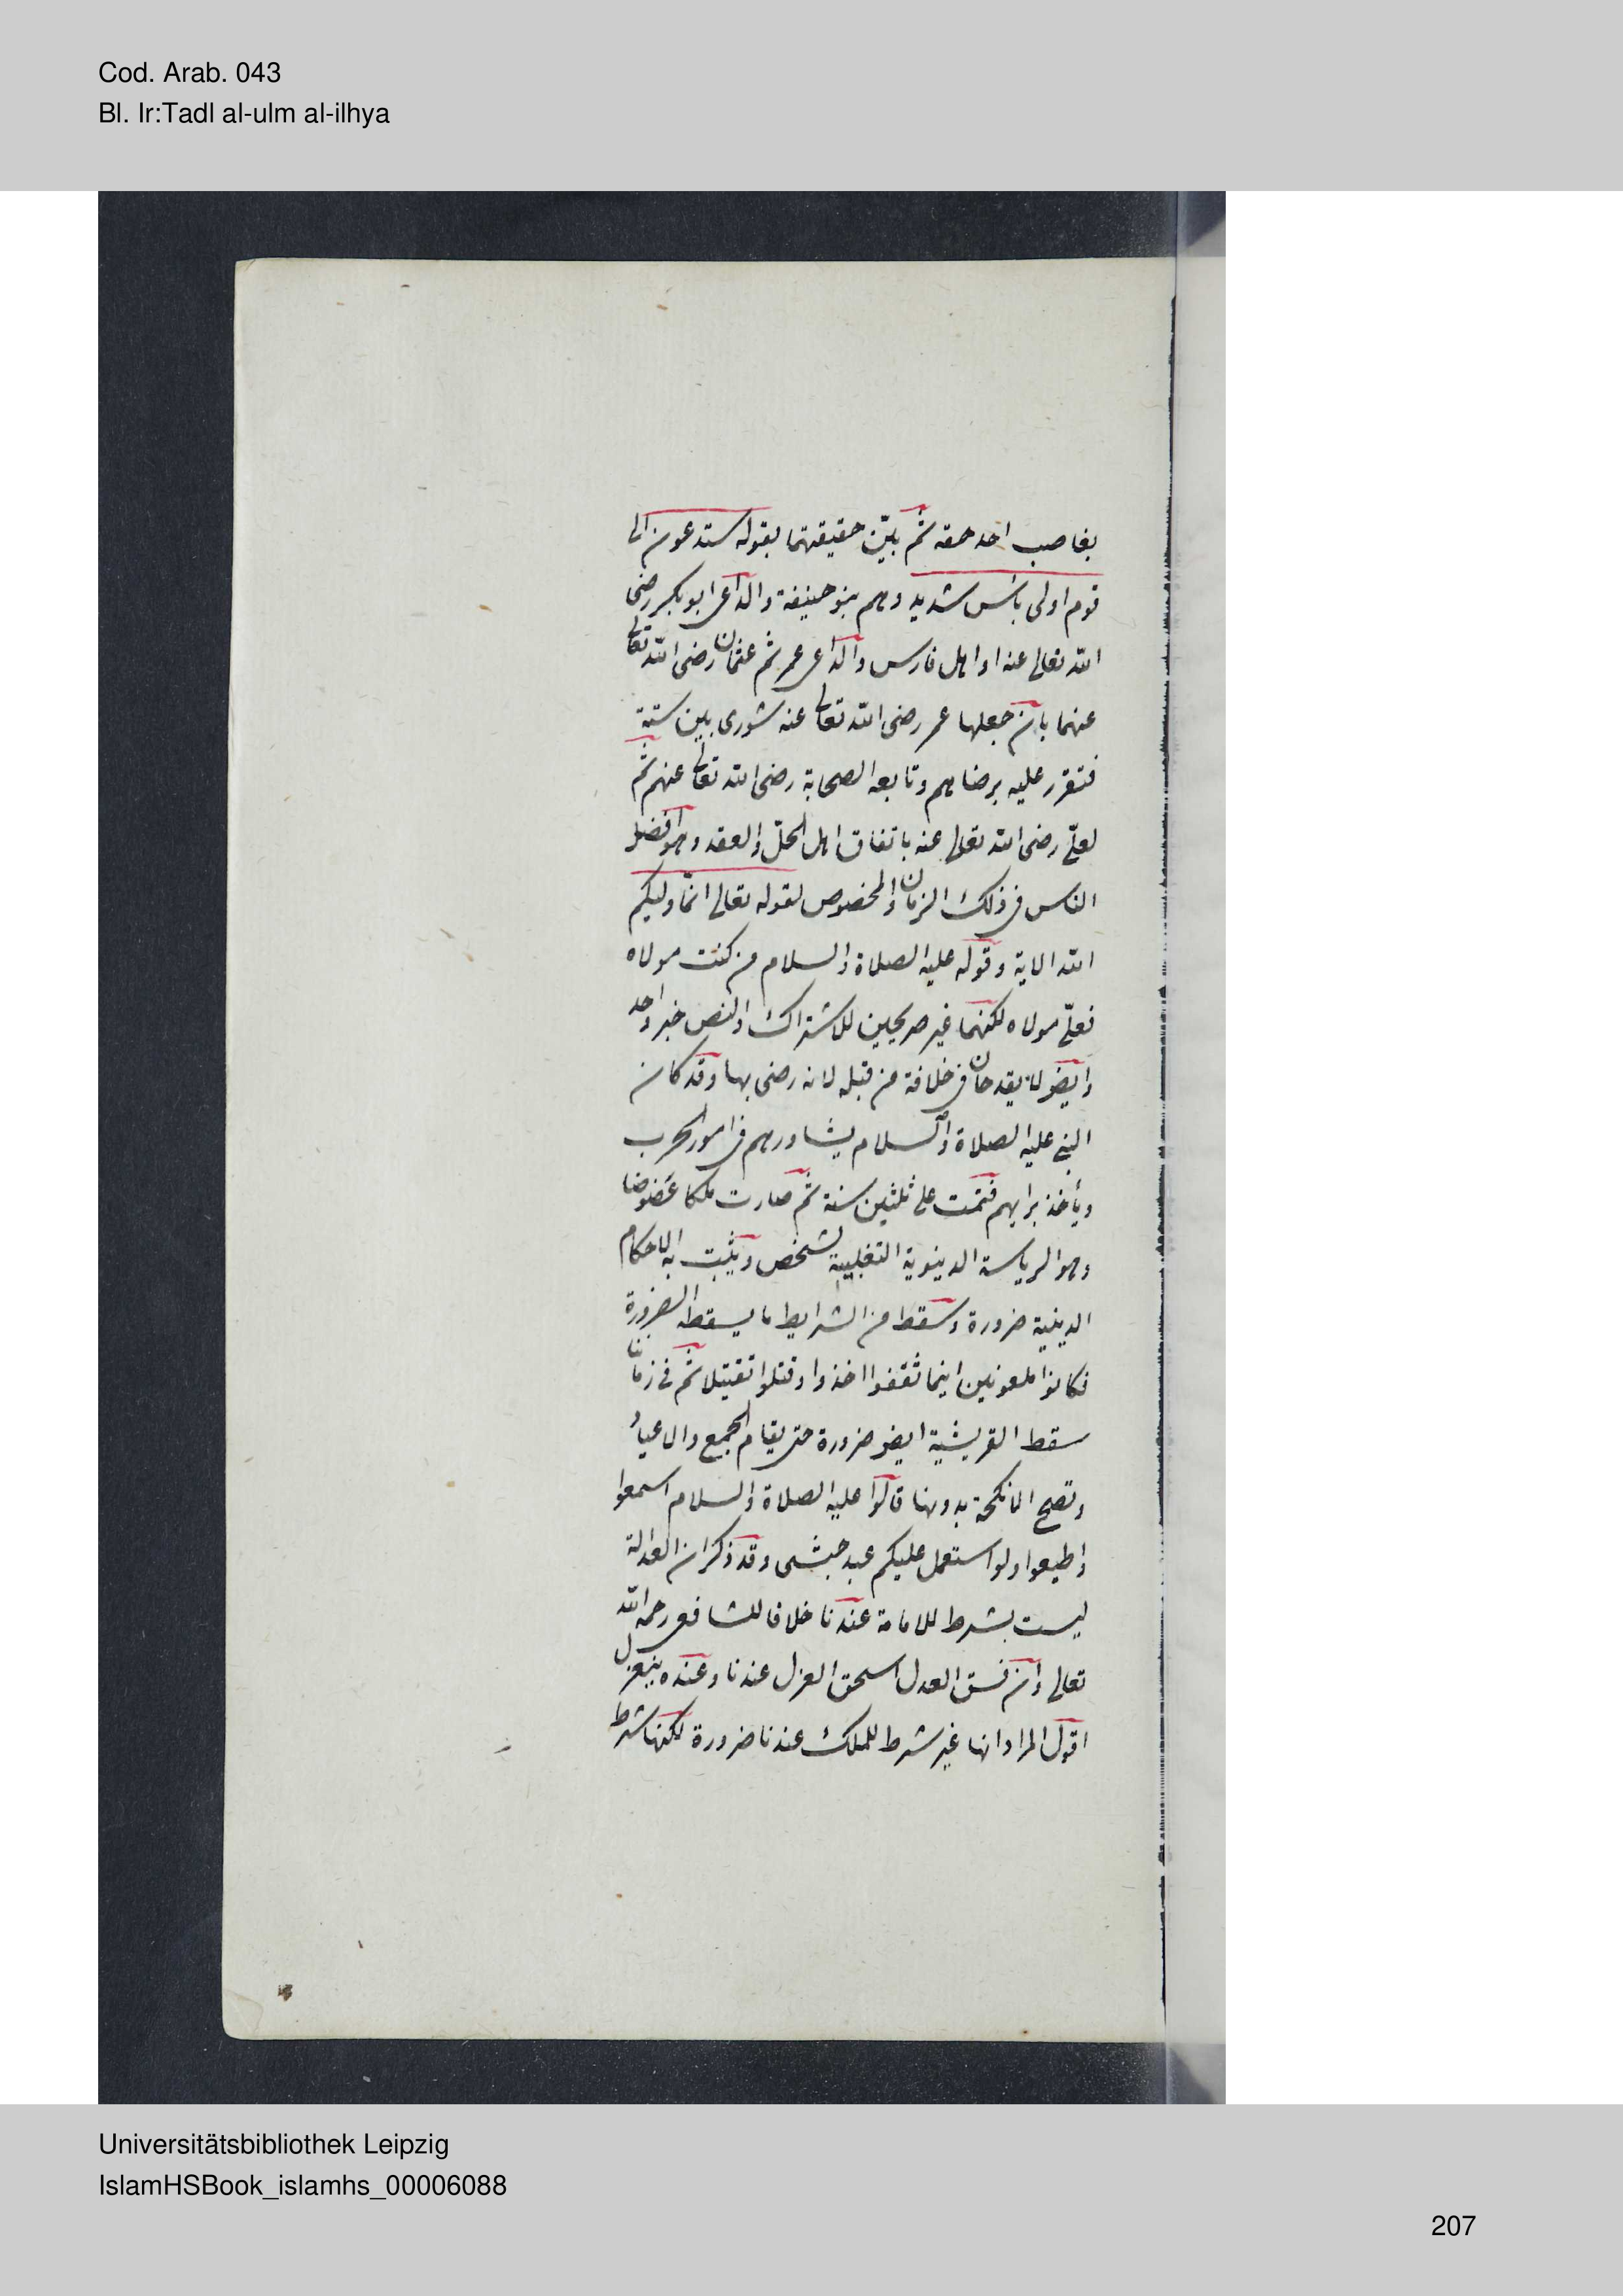 Cod. Arab. 043
Bl. Ir:Tadl al-ulm al-ilhya
بغاصب احد حقه ثم بيّن حقيقتهما بقوله ستدعون الى
قوم اولى بأس شديد وهم بنو حنيفة والداعى ابو بكر رضى
الله تعالى عنه او اهل فارس والداعى عمر ثم عثمان رضى الله تعالى
عنهما بان جعلها عمر رضى الله تعالى عنه شورى بين ستة
فتقرر عليه برضاهم وتابعه الصحابة رضى الله تعالى عنهم ثم
لعلىّ رضى الله تعالى عنه باتفاق اهل الحلّ والعقد وهو افضل
الناس فى ذلك الزمان والمخصوص لقوله تعالى انّما وليكم
الله الاية وقوله عليه الصلاة والسلام من كنت مولاه
فعلىّ مولاه لكنهما غير صريحين للاشتراك والنص خبر واحد
وايضو لا يقدحان فى خلافة من قبله لانه رضى بها وقد كان
النبى عليه الصلاة والسلام يشاورهم فى امور الحرب
ويأخذ برايهم فتمّت على ثلثين سنة ثم صارت ملكا عَضوضا
وهو الرياسة الدينوية التغلبية لشخص ويثبت به الاحكام
الدينية ضرورة وسقط من الشرايط ما يسقطه الضرورة
فكانوا ملعونين اينما ثقفوا اخذوا وقتلوا تقتيلا ثم فى زماننا
سقط القريشية ايضو ضرورة حتى يقام الجمع والاعياد
وتصح الانكحة بدونها قالوا عليه الصلاة والسلام اسمعوا
واطيعوا ولو استعمل عليكم عبد حبشى وقد ذكر ان العدالة
ليست بشرط للامامة عندنا خلافا للشافعى رحمه الله
تعالى وان فسق العدل استحق العزل عندنا وعنده ينعزل
اقول المراد انها غير شرط للملك عندنا ضرورة لكنها شرط
Universitätsbibliothek Leipzig
IslamHSBook_islamhs_00006088
207